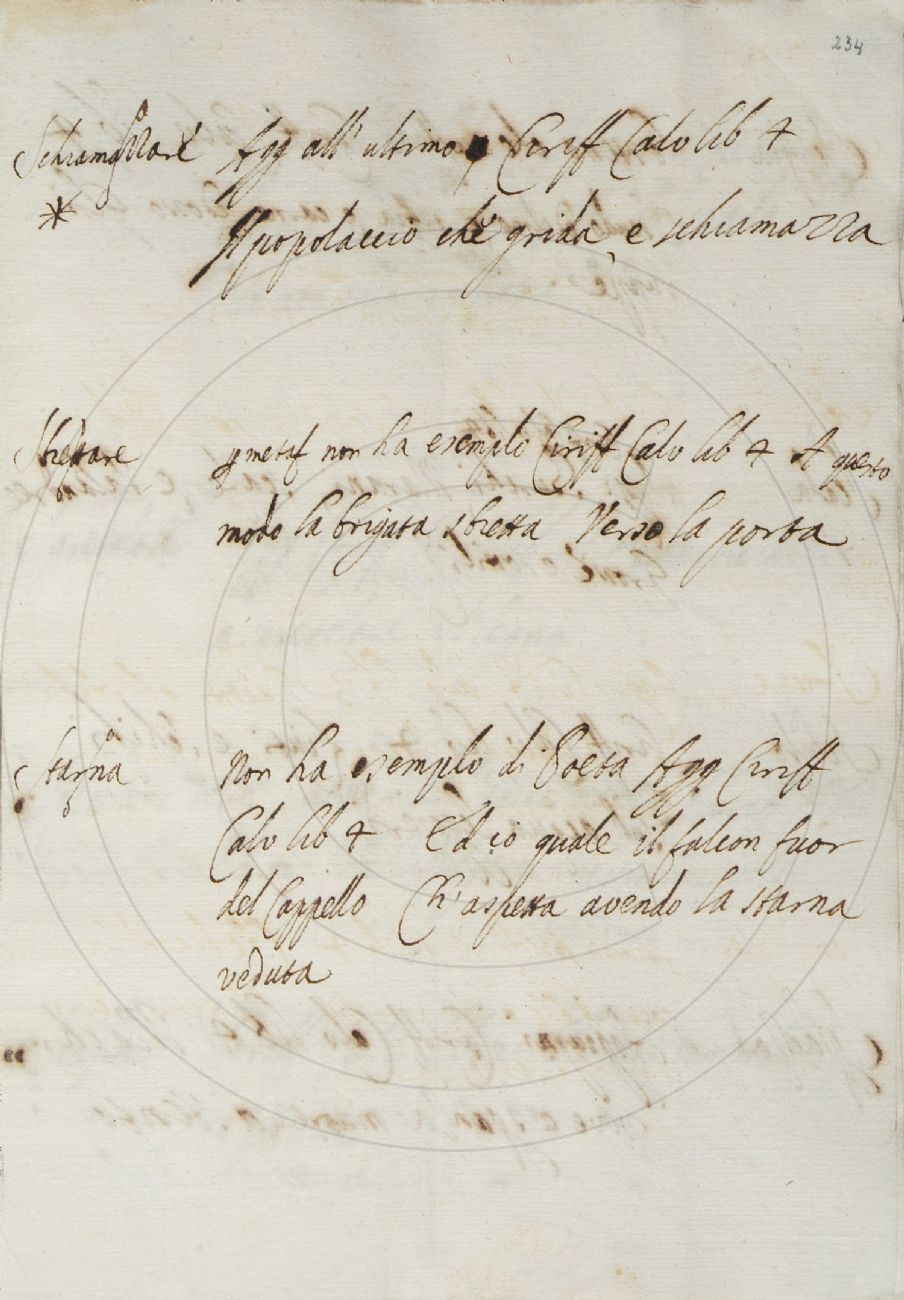 234
Schiamazzare Agg all' ultimo Ciriff Calv lib 4
Il popolaccio che grida, e schiamazza
Sbiettare p metaf non ha esemplo Ciriff Calv lib 4 A questo
modo la brigata sbietta Verso la porta
Starna Non ha esemplo di Poeta Agg Ciriff
Calv lib 4 Ed io quale il falcon fuor
del Cappello Ch' aspetta avendo la starna
veduta